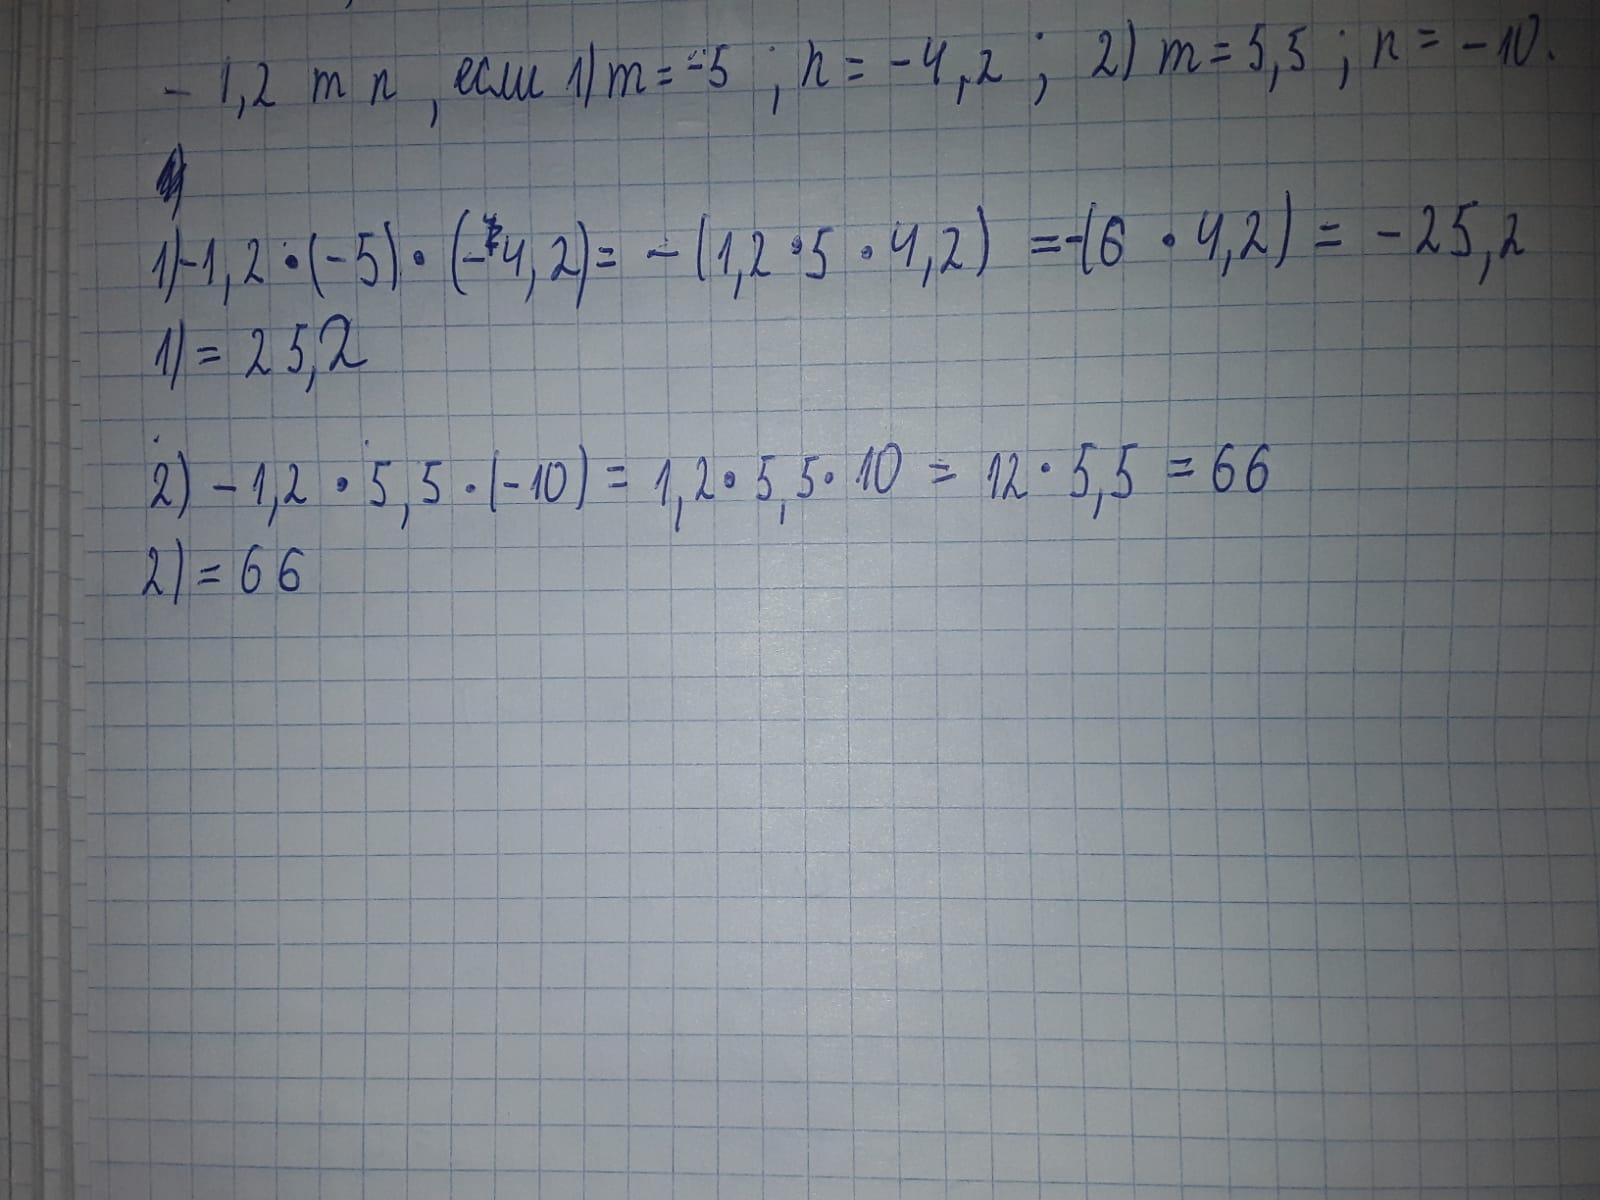 - 1,2 m n, если 1) m = -5 ; n = -4,2 ; 2) m = 5,5 ; n = -10.
1) -1,2 · (-5) · (-4,2) = - (1,2 · 5 · 4,2) = -(6 · 4,2) = -25,2
1) = 25,2
2) - 1,2 · 5,5 · (-10) = 1,2 · 5,5 · 10 = 12 · 5,5 = 66
2) = 66